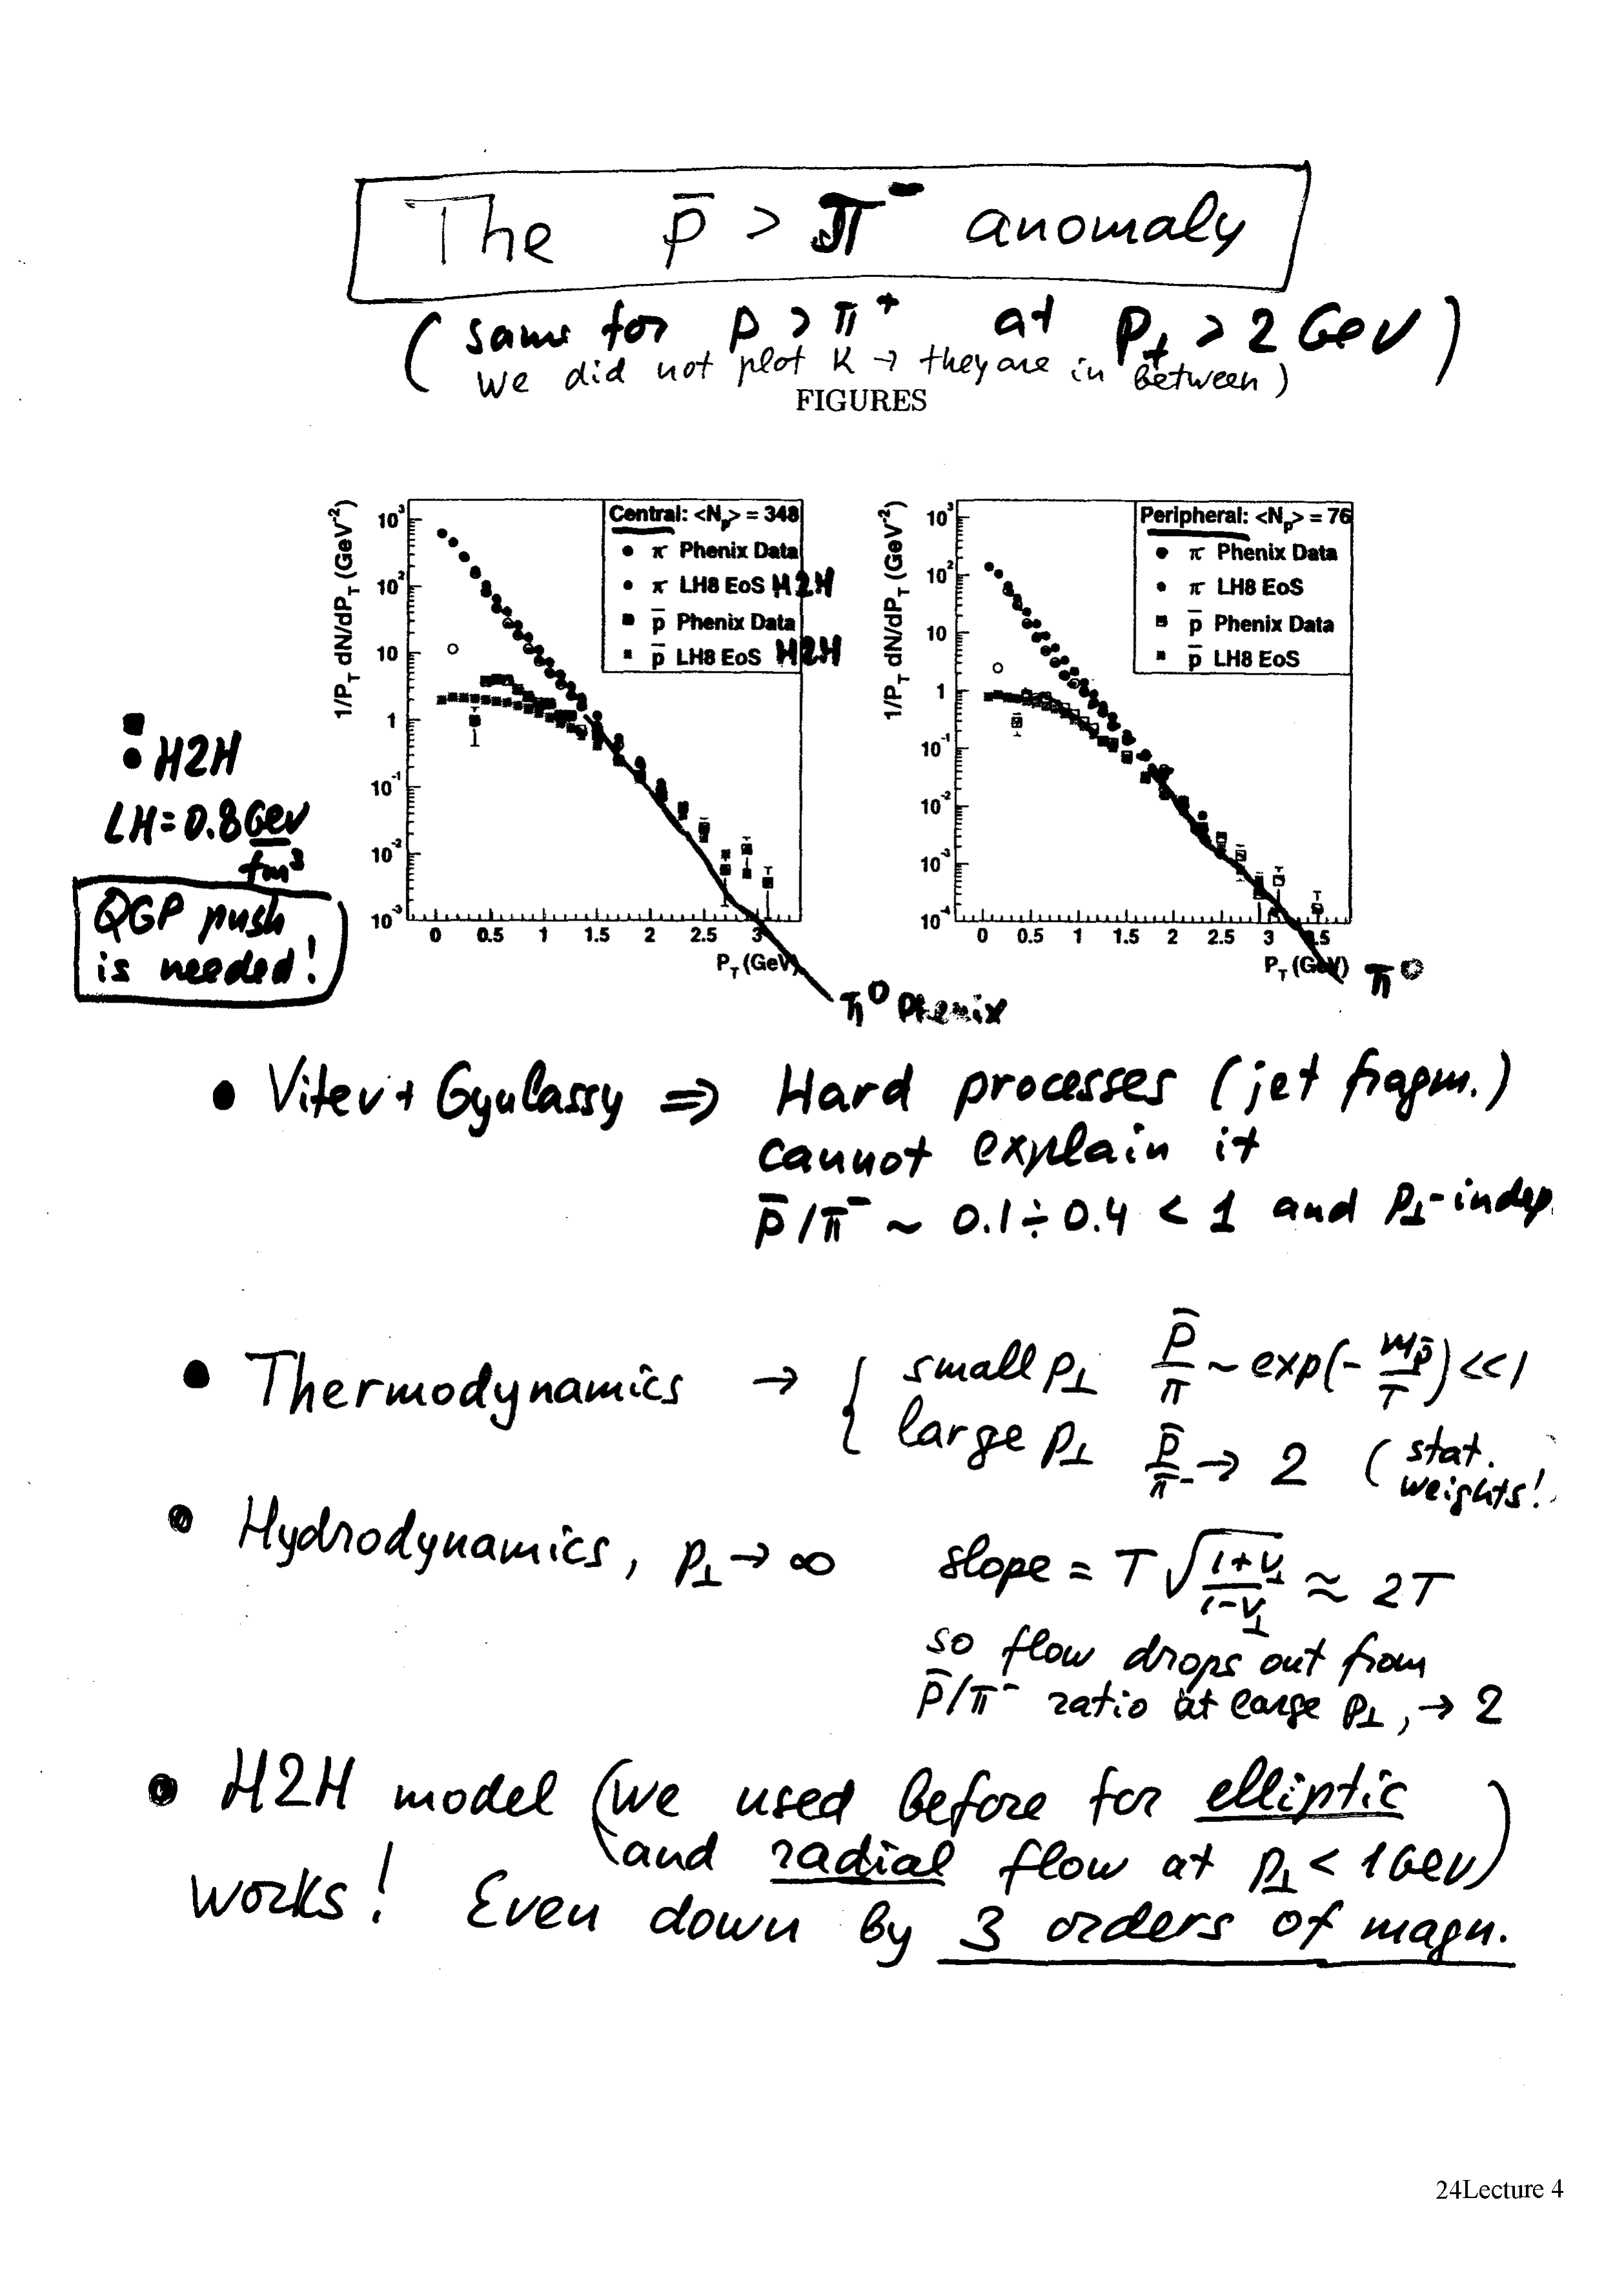 The p̄ > π⁻ anomaly
(same for p > π⁺ at p⊥ > 2 GeV)
we did not plot K → they are in between)
FIGURES
1/P_T dN/dP_T (GeV⁻²)
10³
10²
10
1
10⁻¹
10⁻²
10⁻³
0 0.5 1 1.5 2 2.5 3
P_T (GeV)
Central: <N_p> = 348
π⁻ Phenix Data
π⁻ LH8 EoS H2H
p̄ Phenix Data
p̄ LH8 EoS H2H
π⁰ Phenix
1/P_T dN/dP_T (GeV⁻²)
10³
10²
10
1
10⁻¹
10⁻²
10⁻³
10⁻⁴
0 0.5 1 1.5 2 2.5 3 3.5
P_T (GeV)
Peripheral: <N_p> = 76
π⁻ Phenix Data
π⁻ LH8 EoS
p̄ Phenix Data
p̄ LH8 EoS
π⁰
H2H
LH=0.8 GeV/fm³
QGP push
is needed!
• Vitev + Gyulassy ⇒ Hard processes (jet fragm.)
cannot explain it
p̄/π⁻ ~ 0.1÷0.4 < 1 and p⊥-indep.
• Thermodynamics → { small p⊥ p̄/π ~ exp(- m_p̄/T) << 1
large p⊥ p̄/π⁻ → 2 (stat.
weights!
• Hydrodynamics, p⊥ → ∞ slope = T √((1+v⊥)/(1-v⊥)) ≈ 2T
so flow drops out from
p̄/π⁻ ratio at large p⊥, → 2
• H2H model (we used before for elliptic
and radial flow at p⊥ < 1 GeV)
works! Even down by 3 orders of magn.
24Lecture 4